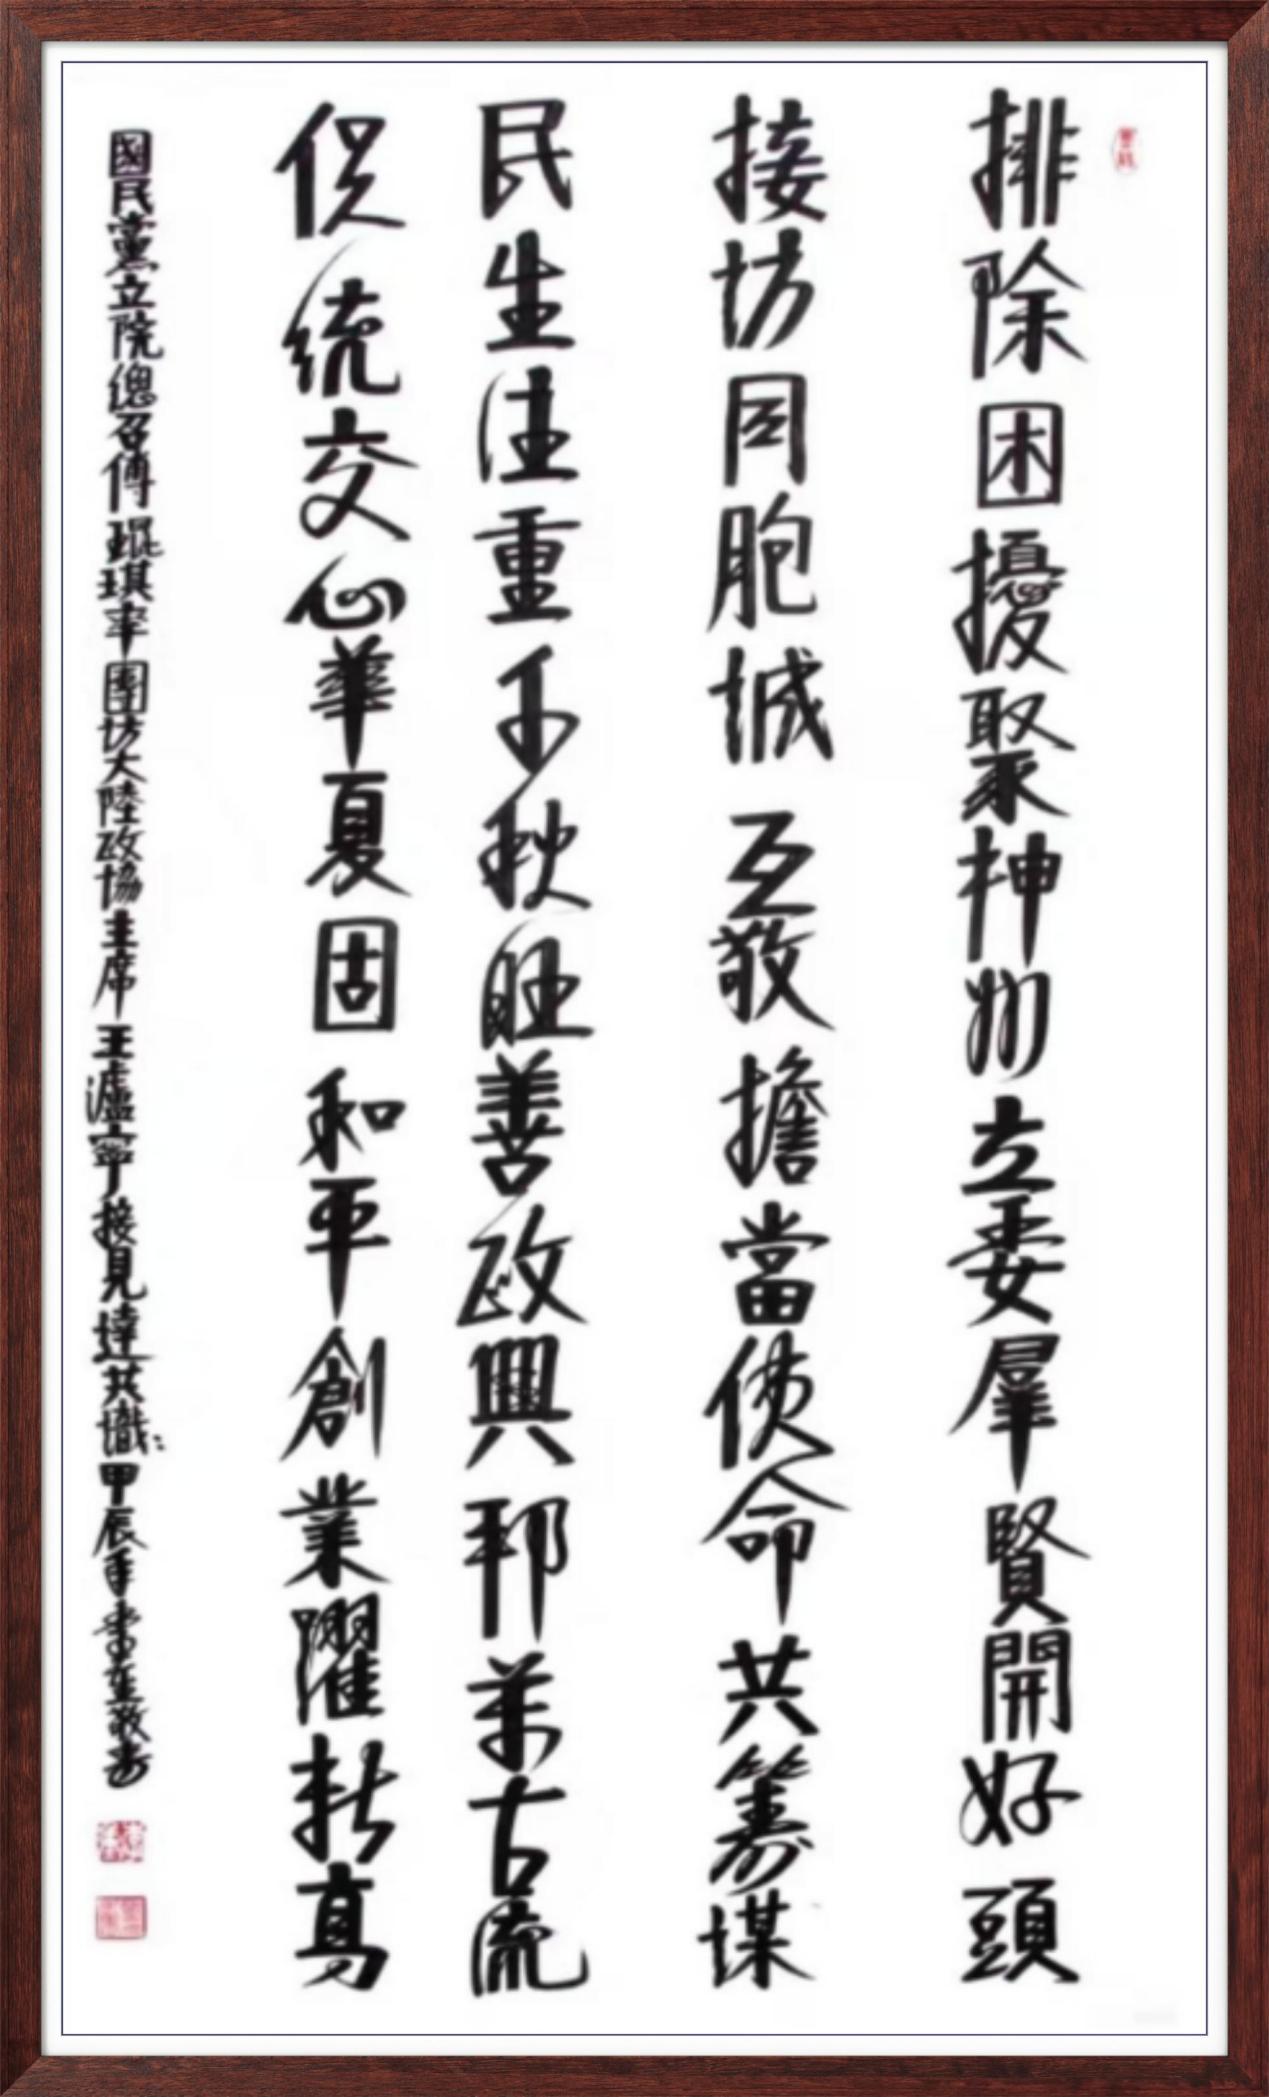 排除困擾聚神州立委羣賢開好頭
接訪同胞誠互敬擔當使命共籌謀
民生注重千秋旺善政興邦萬古流
促統交心華夏固和平創業躍新高
國民黨立院總召傅琨琪率團訪大陸政協主席王滬寧接見達共識甲辰年